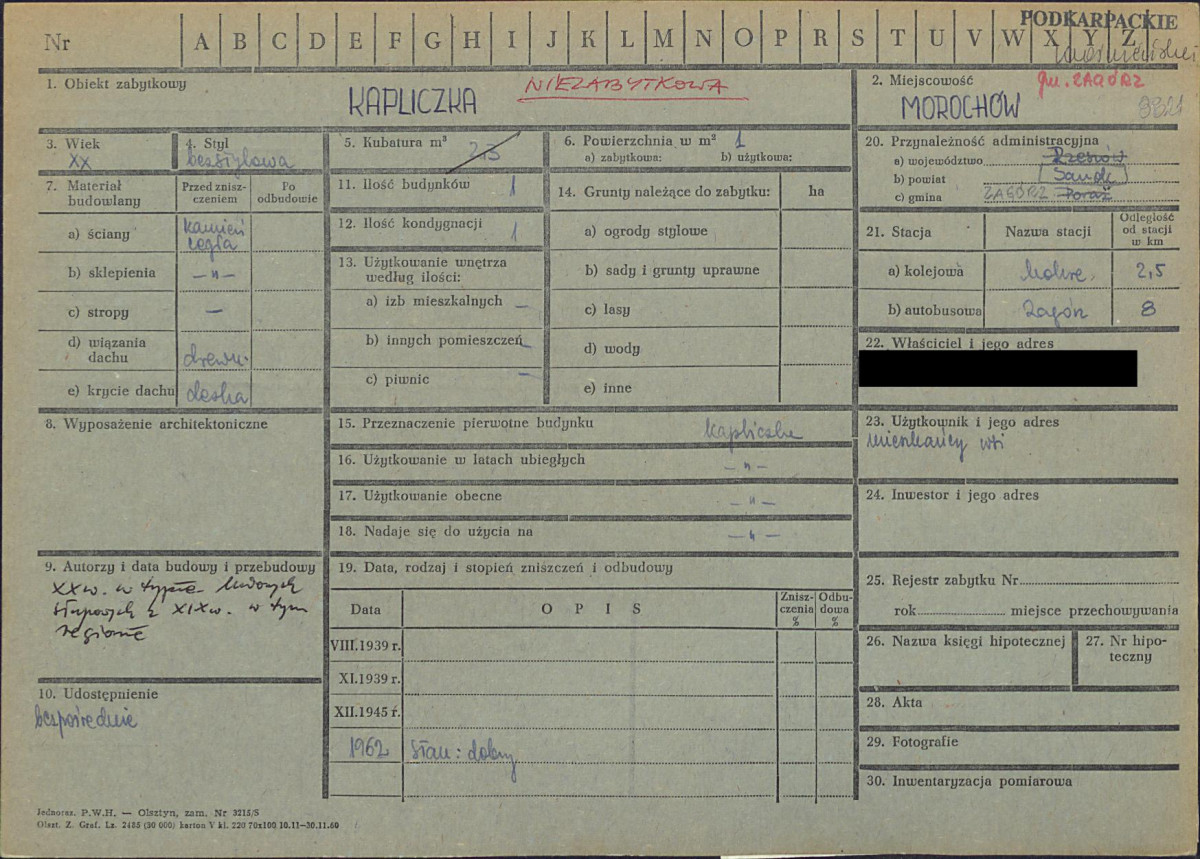 PODKARPACKIE
Nr A B C D E F G H I J K L M N O P R S T U V W X Y Z
1. Obiekt zabytkowy
NIEZABYTKOWA
KAPLICZKA
2. Miejscowość
gm. ZAGÓRZ
MOROCHÓW
3. Wiek
XX
4. Styl
bezstylowa
5. Kubatura m³
2,5
6. Powierzchnia w m² 1
a) zabytkowa: b) użytkowa:
7. Materiał budowlany
Przed znisz-
czeniem
Po
odbudowie
a) ściany
kamień
cegła
b) sklepienia
–"–
c) stropy
–
d) wiązania
dachu
drewn.
e) krycie dachu
deska
11. Ilość budynków 1
12. Ilość kondygnacji 1
13. Użytkowanie wnętrza
według ilości:
a) izb mieszkalnych –
b) innych pomieszczeń –
c) piwnic –
14. Grunty należące do zabytku: ha
a) ogrody stylowe
b) sady i grunty uprawne
c) lasy
d) wody
e) inne
20. Przynależność administracyjna
a) województwo Rzeszów
b) powiat Sanok
c) gmina ZAGÓRZ Poraż
21. Stacja
Nazwa stacji
Odległość
od stacji
w km
a) kolejowa Mokre 2,5
b) autobusowa Zagórz 8
22. Właściciel i jego adres
8. Wyposażenie architektoniczne
15. Przeznaczenie pierwotne budynku kapliczka
16. Użytkowanie w latach ubiegłych –"–
17. Użytkowanie obecne –"–
18. Nadaje się do użycia na –"–
23. Użytkownik i jego adres
mieszkańcy wsi
24. Inwestor i jego adres
9. Autorzy i data budowy i przebudowy
XX w. w typie ludowych
słupowych z XIX w. w tym
regionie
10. Udostępnienie
bezpośrednie
19. Data, rodzaj i stopień zniszczeń i odbudowy
Data
O P I S
Znisz-
czenia
%
Odbu-
dowa
%
VIII.1939 r.
XI.1939 r.
XII.1945 r.
1962 Stan: dobry
25. Rejestr zabytku Nr
rok miejsce przechowywania
26. Nazwa księgi hipotecznej
27. Nr hipo-
teczny
28. Akta
29. Fotografie
30. Inwentaryzacja pomiarowa
Jednoraz. P.W.H. — Olsztyn, zam. Nr 3215/S
Olszt. Z. Graf. Lz. 2485 (30 000) karton V kl. 220 70x100 10.11—30.11.60